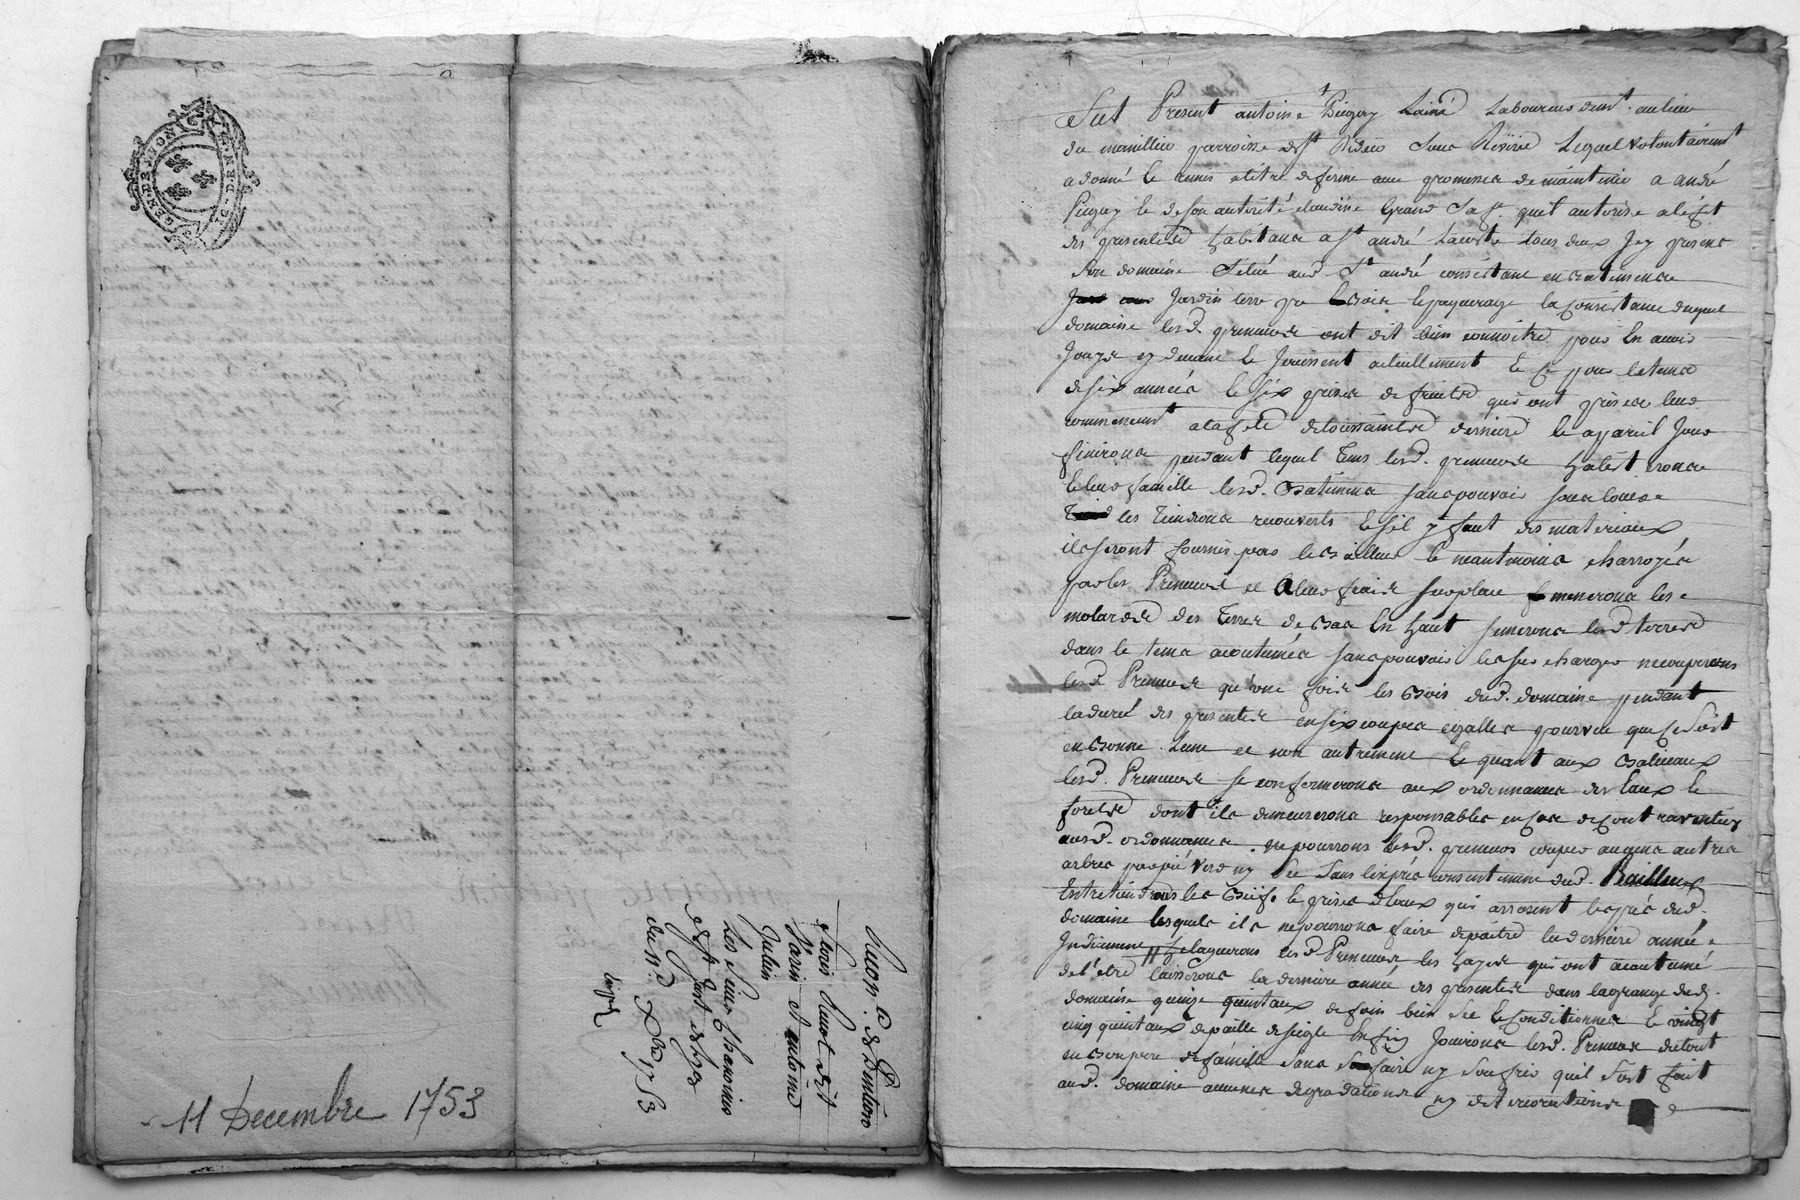 GEN. DE LYON
11 Decembre 1753
Les Sieurs Chanoines
de St Just de Lyon
du 11e Xbre 1753
Fut Present antoine Puguy Lainé Laboureur demt. au lieu
du manillieu parroisse de St Didier Sous Riviere Lequel volontairemt
a donné et remis a titre de ferme avec promesse de maintenir a andré
Puguy et de son autorité claudine Grand Sa fe. quil autorise a leffet
des presentes habitans a St andré Lacoste tous deux Icy presens
Son domaine Situé aud. St andré consistant en batimens
Jardin terre pré bois et paquerage la consistance duquel
domaine lesd. preneurs ont dit bien connoitre pour En avoir
Jouy cy devant et Jouissent actuellement Et ce pour le tems
de six années et six prises de fruits qui ont pris leur
commencemt a la fete de toussaints derniere et a pareil Jour
finirons pendant lequel tems lesd. preneurs habiterons
et leur famille lesd. Batimens sans pouvoir sous louer
les tiendrons recouverts et s'il y faut des materiaux
ils seront fournis par le bailleur et neantmoins charroyés
par les Preneurs et a leur frais sur place menerons les
molards des Terres de bas En haut semerons lesd. terres
dans le tems acoutumés sans pouvoir les surcharger ne couperons
lesd. Preneurs qu'une fois les Bois dud. domaine pendant
la durée des presentes en six coupes egalles pourvu que ce soit
en bonne Lune et non autrement Et quant aux baliveaux
lesd. Preneurs se conformerons aux ordonnances des Eaux et
forets dont ils demeurerons responsables en cas de contravention
ausd. ordonnances. ne pourrons lesd. preneurs couper aucuns autres
arbres par pié verd ny sec sans l'exprès consentement dud. Bailleur
Entretiendrons les Biefs et prises d'Eaux qui arrosent les prés dud.
domaine lesquels ils ne pourrons faire depaitre la derniere année
Indeument Elaguerons lesd. Preneurs les hayes qui ont acoutumé
de l'etre laisserons la derniere année des presentes dans la grange dud.
domaine quinze quintaux de foin bien sec et conditionnes et vingt
cinq quintaux de paille de seigle Enfin Jouirons lesd. Preneurs du tout
en bon pere de famille sans faire ny soufrir quil soit fait
aud. domaine aucunes degradations ny deteriorations